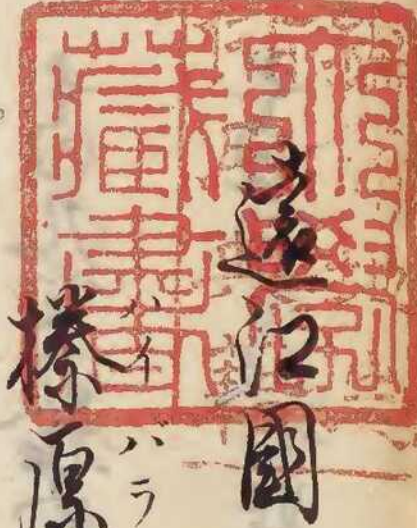 遠江國
榛原
ハイバラ
藏書